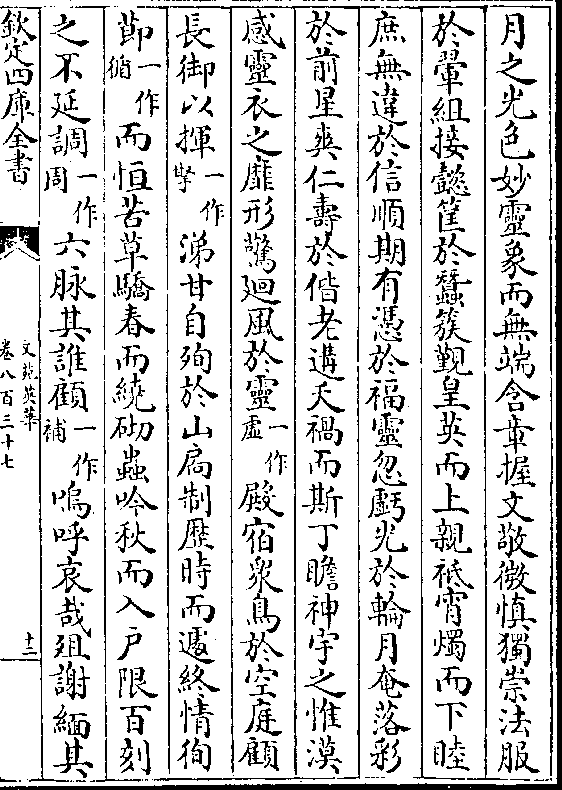 月之光色妙靈象而無端含章握文敬微慎獨崇法服
於翬組接懿筐於蠶簇觀皇英而上親祗宵燭而下睦
庶無違於信順期有憑於福靈忽虧光於輪月奄落彩
於前星爽仁壽於偕老遘夭禍而斯丁瞻神宇之惟漠
感靈衣之靡形驚廻風於靈一作虛殿宿衆鳥於空庭顧
長御以揮一作擥涕甘自殉於山扄制歴時而遽終情徇
節一作循而恒苦草驕春而繞砌蟲吟秋而入户限百刻
之不延調一作周六脉其誰顧一作補嗚呼哀哉徂謝緬其
欽定四庫全書
文苑英華
卷八百三十七
十二